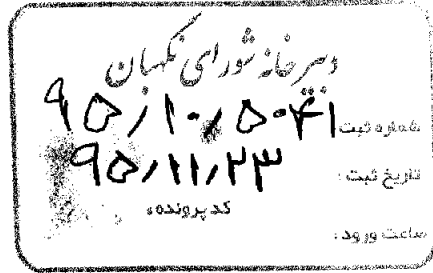 دبیرخانه شورای نگهبان
شماره ثبت: ۹۵/۱۰/۵۰۴۱
تاریخ ثبت: ۹۵/۱۱/۲۳
کد پرونده:
ساعت ورود: